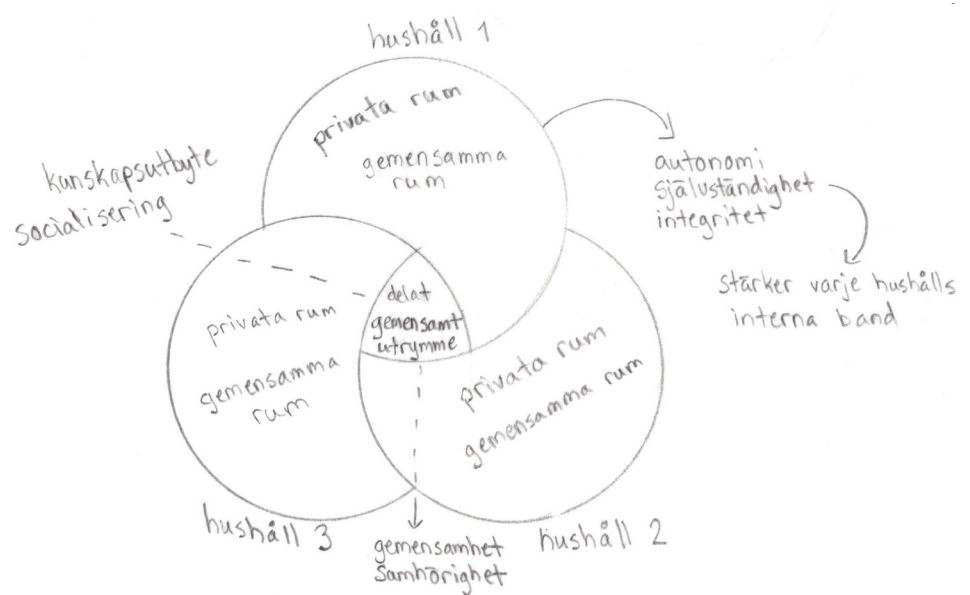 hushåll 1
privata rum
gemensamma
rum
kunskapsutbyte
socialisering
autonomi
självständighet
integritet
stärker varje hushålls
interna band
delat
gemensamt
utrymme
privata rum
gemensamma
rum
privata rum
gemensamma rum
hushåll 3
hushåll 2
gemensamhet
samhörighet